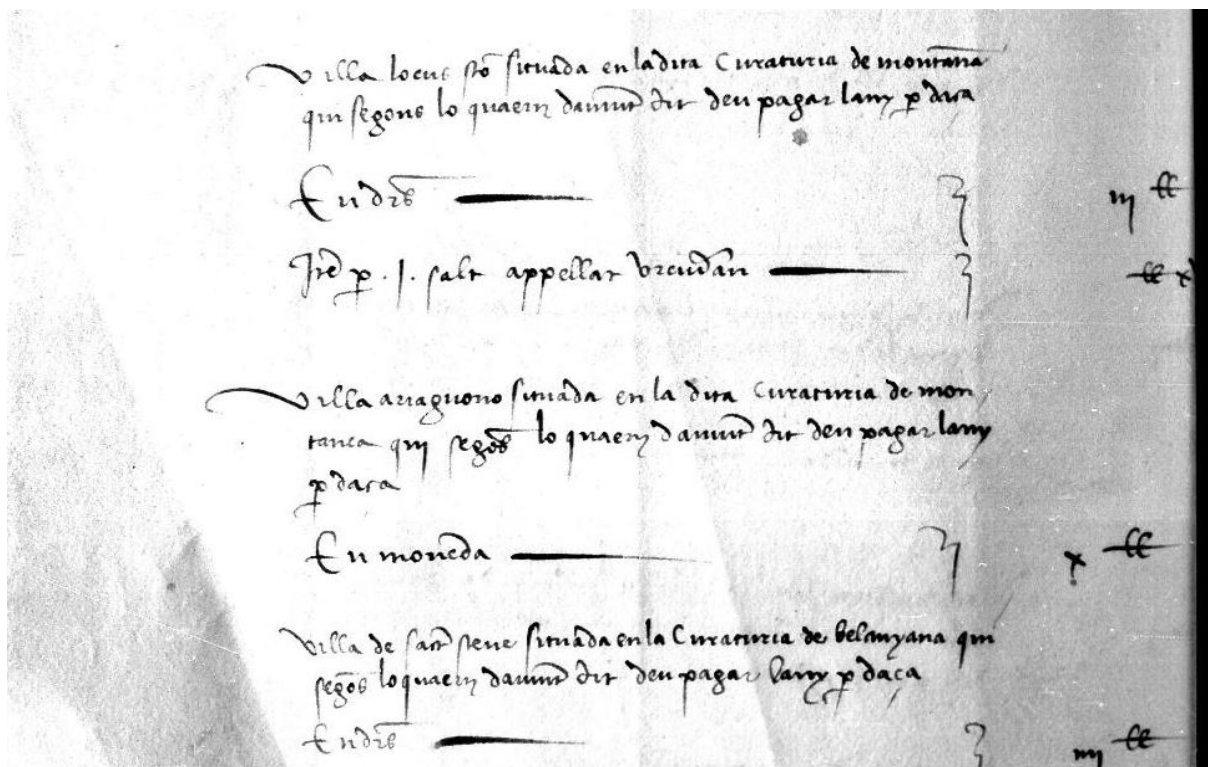 Villa locus sto situada en la dita Curaturia de montana
qui segons lo quaern damunt dit deu pagar lany p daça
En drs iii ll
Ite p .I. salt appellat ll x
Villa ariaguono situada en la dita Curaturia de mon
tanea qui segos lo quaern damunt dit deu pagar lany
p daça
En moneda x ll
Villa de sact steue situada en la Curaturia de belanyana qui
segos lo quaern damunt dit deu pagar lany p daça
En drs iiii ll